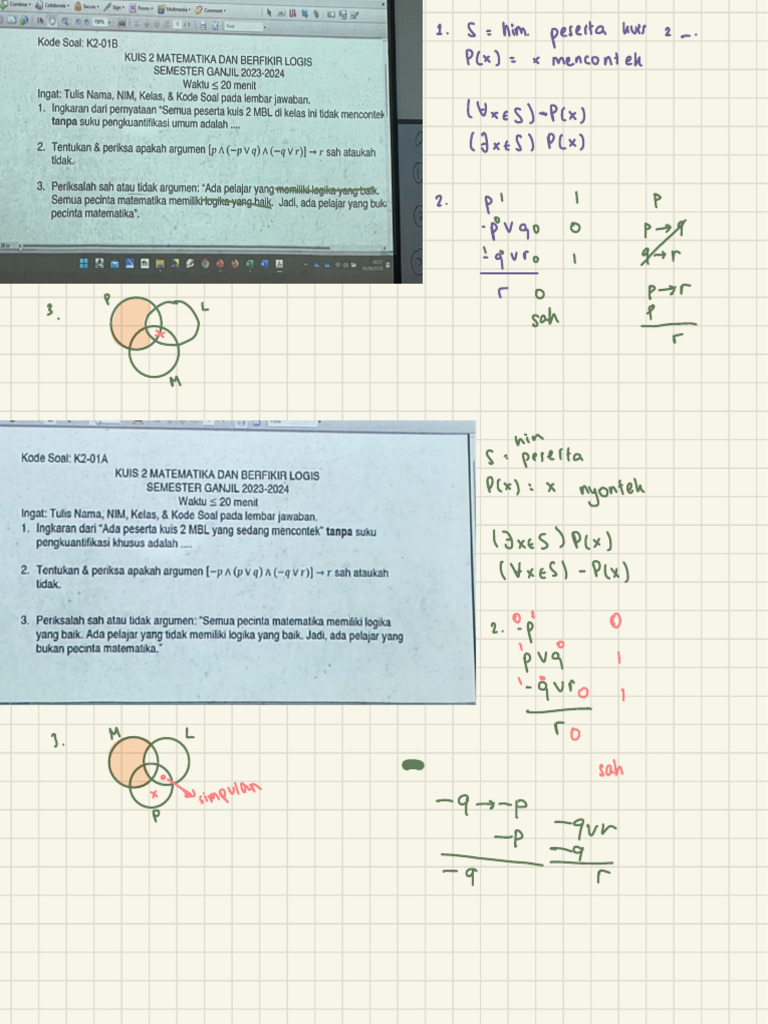 Kode Soal: K2-01B
KUIS 2 MATEMATIKA DAN BERFIKIR LOGIS
SEMESTER GANJIL 2023-2024
Waktu ≤ 20 menit
Ingat: Tulis Nama, NIM, Kelas, & Kode Soal pada lembar jawaban.
1. Ingkaran dari pernyataan “Semua peserta kuis 2 MBL di kelas ini tidak mencontek
tanpa suku pengkuantifikasi umum adalah ....
2. Tentukan & periksa apakah argumen [p ∧ (−p ∨ q) ∧ (−q ∨ r)] → r sah ataukah
tidak.
3. Periksalah sah atau tidak argumen: “Ada pelajar yang memiliki logika yang baik.
Semua pecinta matematika memiliki logika yang baik. Jadi, ada pelajar yang buk
pecinta matematika”.
1. S = him. peserta kuis 2 ...
P(x) = x mencontek
(∀x∈S) −P(x)
(∃x∈S) P(x)
2. p 1 1 p
-p∨q 0 0 p→q
-q∨r 0 1 q→r
r 0 p→r
sah p
r
3.
P
L
M
Kode Soal: K2-01A
KUIS 2 MATEMATIKA DAN BERFIKIR LOGIS
SEMESTER GANJIL 2023-2024
Waktu ≤ 20 menit
Ingat: Tulis Nama, NIM, Kelas, & Kode Soal pada lembar jawaban.
1. Ingkaran dari “Ada peserta kuis 2 MBL yang sedang mencontek” tanpa suku
pengkuantifikasi khusus adalah ....
2. Tentukan & periksa apakah argumen [−p ∧ (p ∨ q) ∧ (−q ∨ r)] → r sah ataukah
tidak.
3. Periksalah sah atau tidak argumen: “Semua pecinta matematika memiliki logika
yang baik. Ada pelajar yang tidak memiliki logika yang baik. Jadi, ada pelajar yang
bukan pecinta matematika.”
him
S = peserta
P(x) : x nyontek
(∃x∈S) P(x)
(∀x∈S) −P(x)
2. -p 0
p∨q 1
-q∨r 0 1
r 0
sah
3.
M
L
simpulan
P
−q→−p
−p −q∨r
−q
−q r